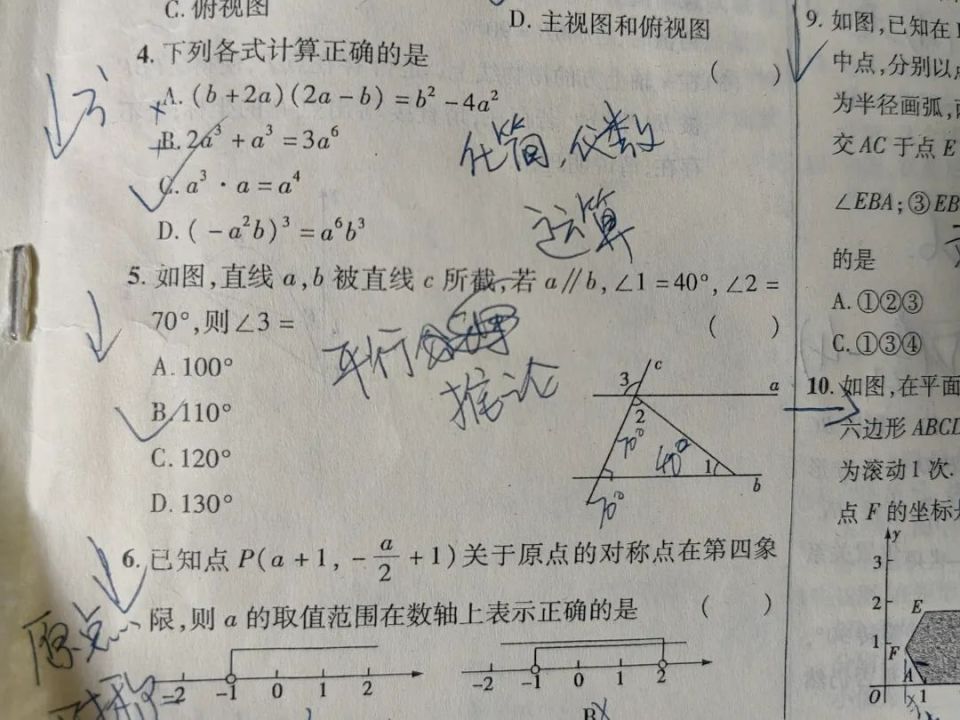 C. 俯视图
D. 主视图和俯视图
4. 下列各式计算正确的是
( )
A. (b+2a)(2a-b)=b²-4a²
B. 2a³+a³=3a⁶
C. a³·a=a⁴
D. (-a²b)³=a⁶b³
化简,代数
运算
5. 如图,直线 a,b 被直线 c 所截,若 a∥b,∠1=40°,∠2=
70°,则∠3=
( )
A. 100°
B. 110°
C. 120°
D. 130°
平行
推论
c
3
a
2
70°
40°
1
b
70°
6. 已知点 P(a+1, -a/2+1)关于原点的对称点在第四象
限,则 a 的取值范围在数轴上表示正确的是 ( )
原点
对称
-2 -1 0 1 2
-2 -1 0 1 2
B
9. 如图,已知在
中点,分别以
为半径画弧,
交 AC 于点 E
∠EBA;③EB
的是
A. ①②③
C. ①③④
10. 如图,在平面
六边形 ABCD
为滚动1次.
点 F 的坐标
y
3
2
E
1
F
A
O
1